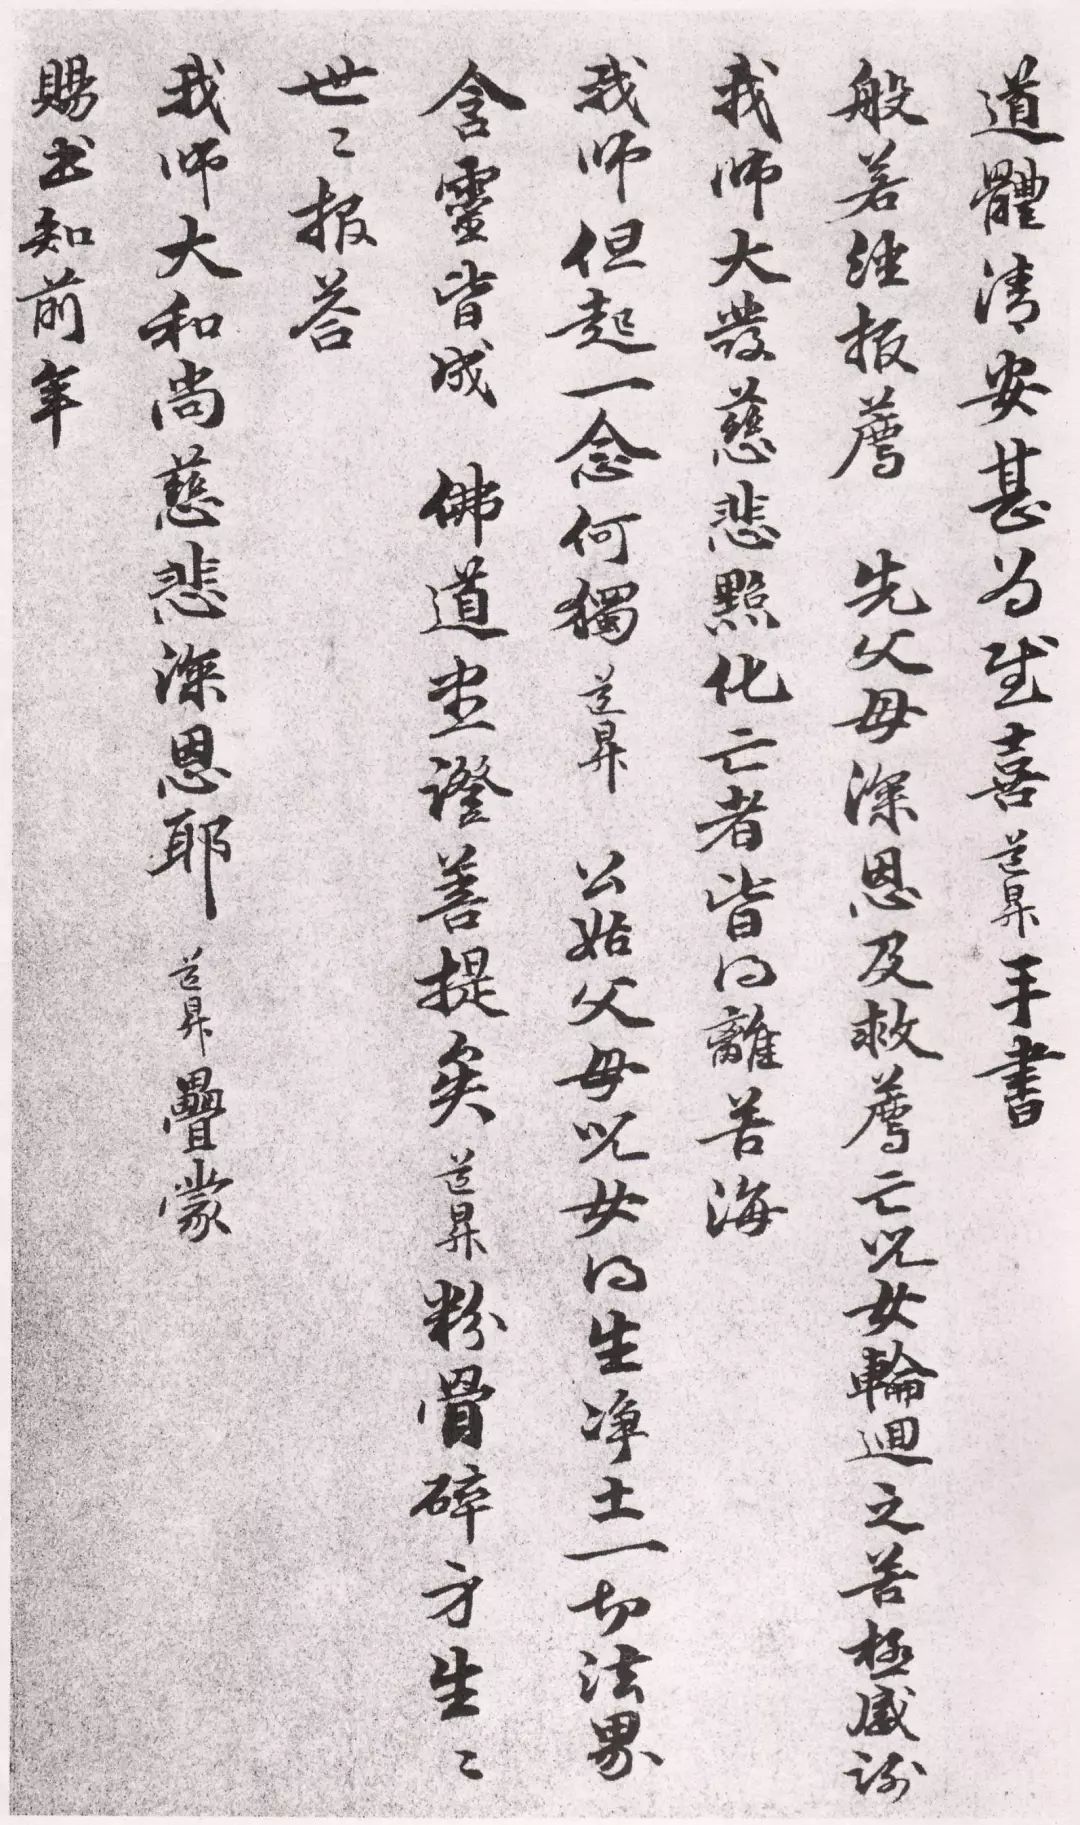 道體清安甚為慰喜道昇手書
般若經报薦 先父母深恩及救薦亡兒女輪迴之苦極感谢
我师大發慈悲點化亡者皆得離苦海
我师但起一念何獨道昇 公姑父母兒女得生净土一切法界
含靈皆成 佛道坐證菩提矣道昇粉骨碎身生〻
世〻报答
我师大和尚慈悲深恩耶道昇疊蒙
賜书知前年